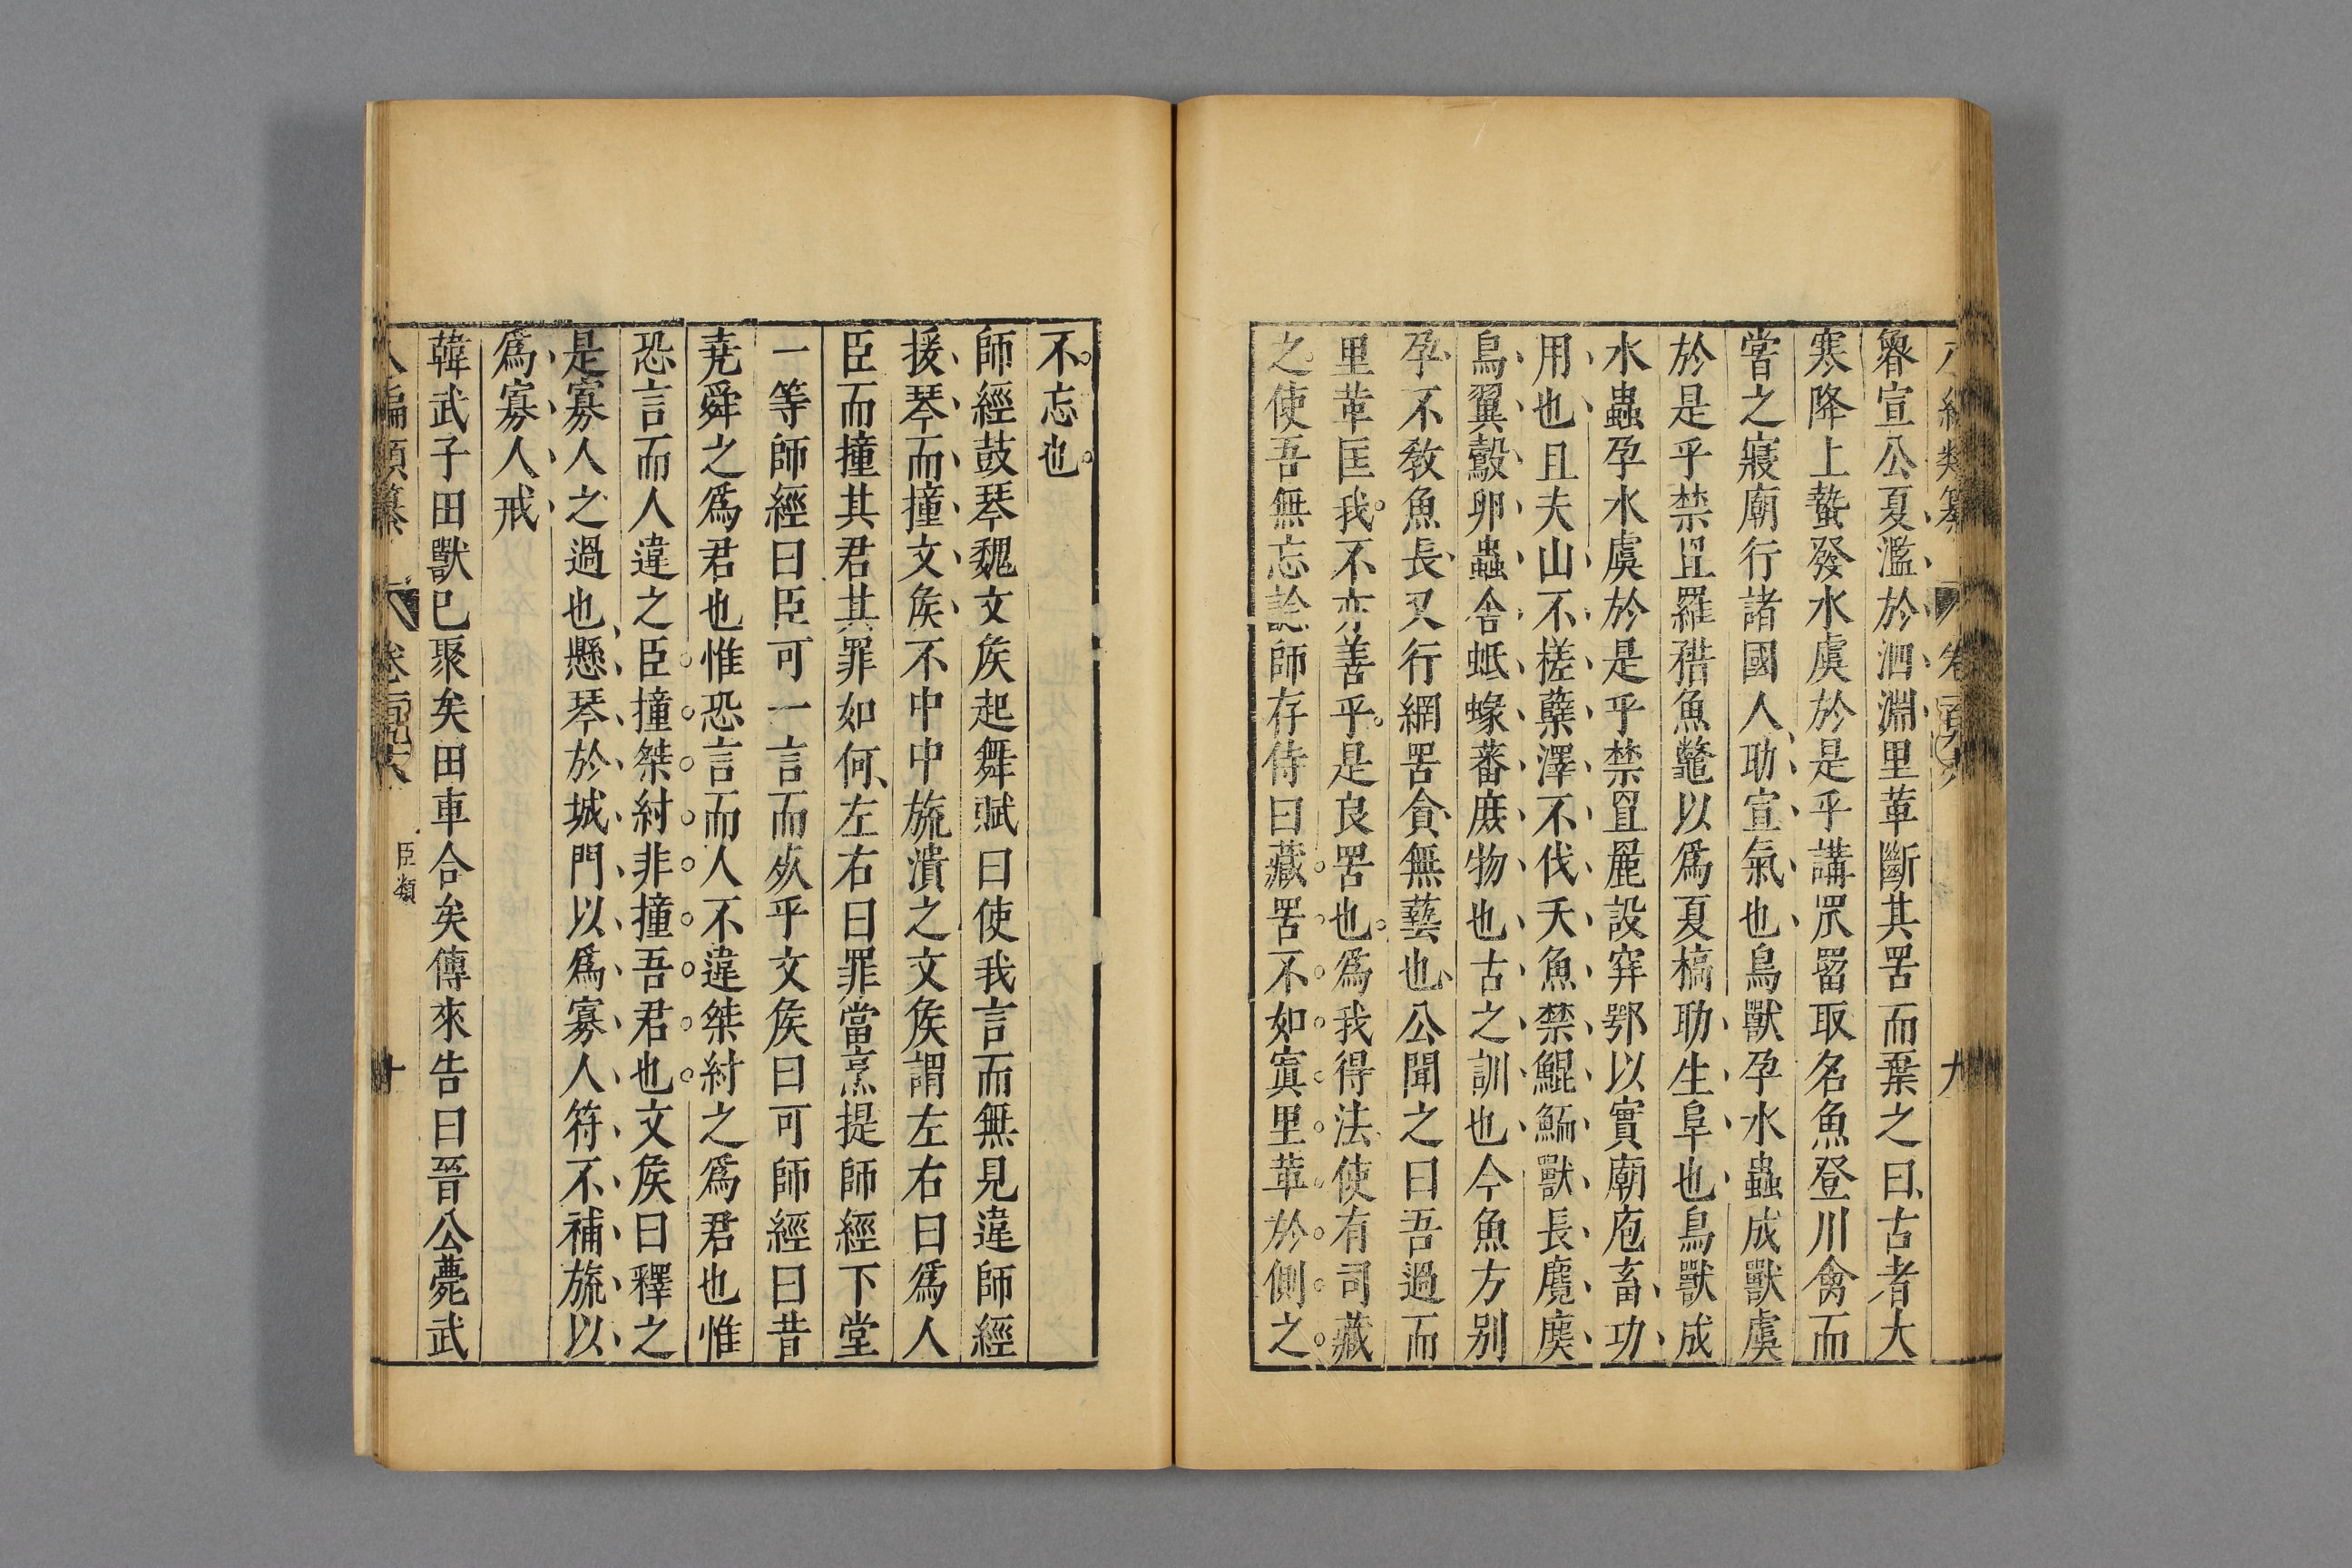 魯宣公夏濫於泗淵里革斷其罟而棄之曰古者大
寒降上蟄發水虞於是乎講罛罶取名魚登川禽而
嘗之寢廟行諸國人助宣氣也鳥獸孕水蟲成獸虞
於是乎禁罝羅矠魚鼈以爲夏槁助生阜也鳥獸成
水蟲孕水虞於是乎禁罝䍡設穽鄂以實廟庖畜功
用也且夫山不槎櫱澤不伐夭魚禁鯤鮞獸長麑䴠
鳥翼鷇卵蟲舍蚳蝝蕃庶物也古之訓也今魚方别
孕不教魚長又行網罟貪無藝也公聞之曰吾過而
里革匡我不亦善乎是良罟也爲我得法使有司藏
之使吾無忘諗師存侍曰藏罟不如寘里革於側之
不忘也
師經鼓琴魏文矦起舞賦曰使我言而無見違師經
援琴而撞文矦不中中旒潰之文矦謂左右曰爲人
臣而撞其君其罪如何左右曰罪當烹提師經下堂
一等師經曰臣可一言而歾乎文矦曰可師經曰昔
堯舜之爲君也惟恐言而人不違桀紂之爲君也惟
恐言而人違之臣撞桀紂非撞吾君也文矦曰釋之
是寡人之過也懸琴於城門以爲寡人符不補旒以
爲寡人戒
韓武子田獸已聚矣田車合矣傳來告曰晉公薨武
臣類
十